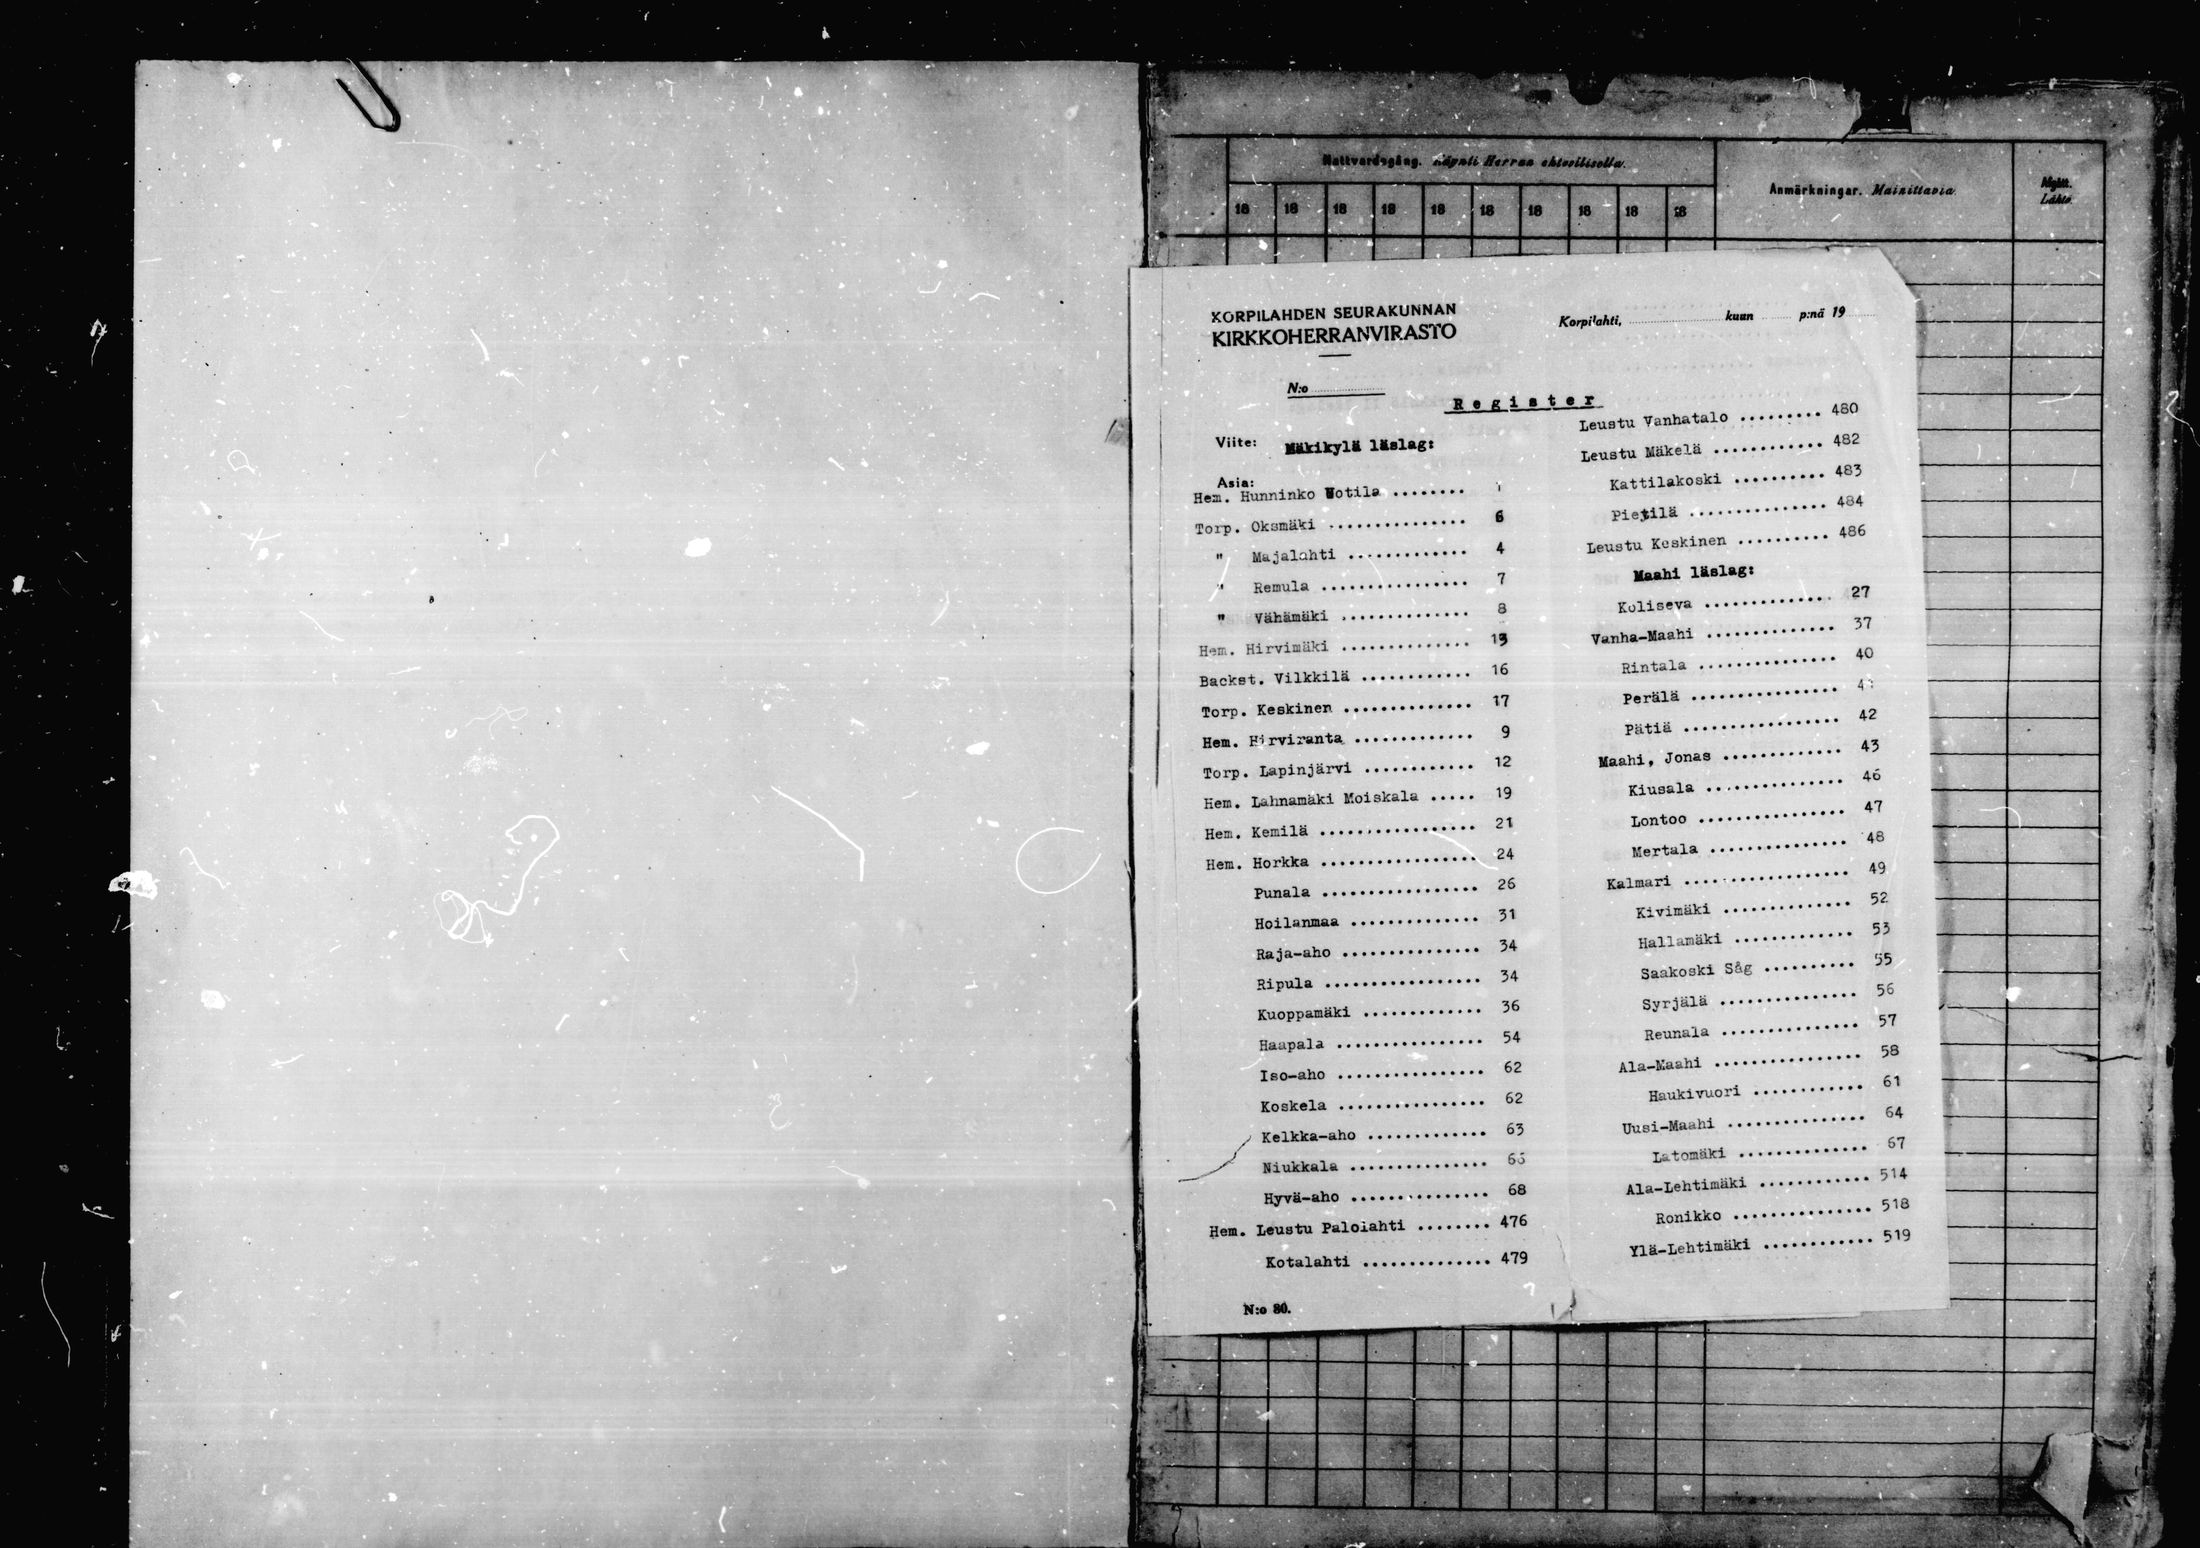 Nattvardsgång. Käynti Herran ehtoollisella.
Anmärkningar. Mainittavia.
Lähtö.
18 18 18 18 18 18 18 18 18 18
KORPILAHDEN SEURAKUNNAN
KIRKKOHERRANVIRASTO
Korpilahti, kuun p:nä 19
N:o
Register
Viite:
Mäkikylä läslag:
Asia:
Hem. Hunninko Uotila ........ 1
Torp. Oksmäki ............... 6
" Majalahti ............. 4
" Remula ................ 7
" Vähämäki .............. 8
Hem. Hirvimäki .............. 13
Backst. Vilkkilä ............ 16
Torp. Keskinen .............. 17
Hem. Hirviranta ............. 9
Torp. Lapinjärvi ............ 12
Hem. Lahnamäki Moiskala ..... 19
Hem. Kemilä ................. 21
Hem. Horkka ................. 24
Punala ................. 26
Hoilanmaa .............. 31
Raja-aho ............... 34
Ripula ................. 34
Kuoppamäki ............. 36
Haapala ................ 54
Iso-aho ................ 62
Koskela ................ 62
Kelkka-aho ............. 63
Niukkala ...............
Hyvä-aho ............... 68
Hem. Leustu Palolahti ........ 476
Kotalahti .............. 479
N:o 80.
Leustu Vanhatalo ......... 480
Leustu Mäkelä ............ 482
Kattilakoski .......... 483
Pietilä ............... 484
Leustu Keskinen .......... 486
Maahi läslag:
Koliseva .............. 27
Vanha-Maahi .............. 37
Rintala ............... 40
Perälä ................ 41
Pätiä ................. 42
Maahi, Jonas ............. 43
Kiusala ............... 46
Lontoo ................ 47
Mertala ............... 48
Kalmari .................. 49
Kivimäki .............. 52
Hallamäki ............. 53
Saakoski Såg .......... 55
Syrjälä ............... 56
Reunala ............... 57
Ala-Maahi ................ 58
Haukivuori ............ 61
Uusi-Maahi ............... 64
Latomäki .............. 67
Ala-Lehtimäki ............ 514
Ronikko ............... 518
Ylä-Lehtimäki ............ 519